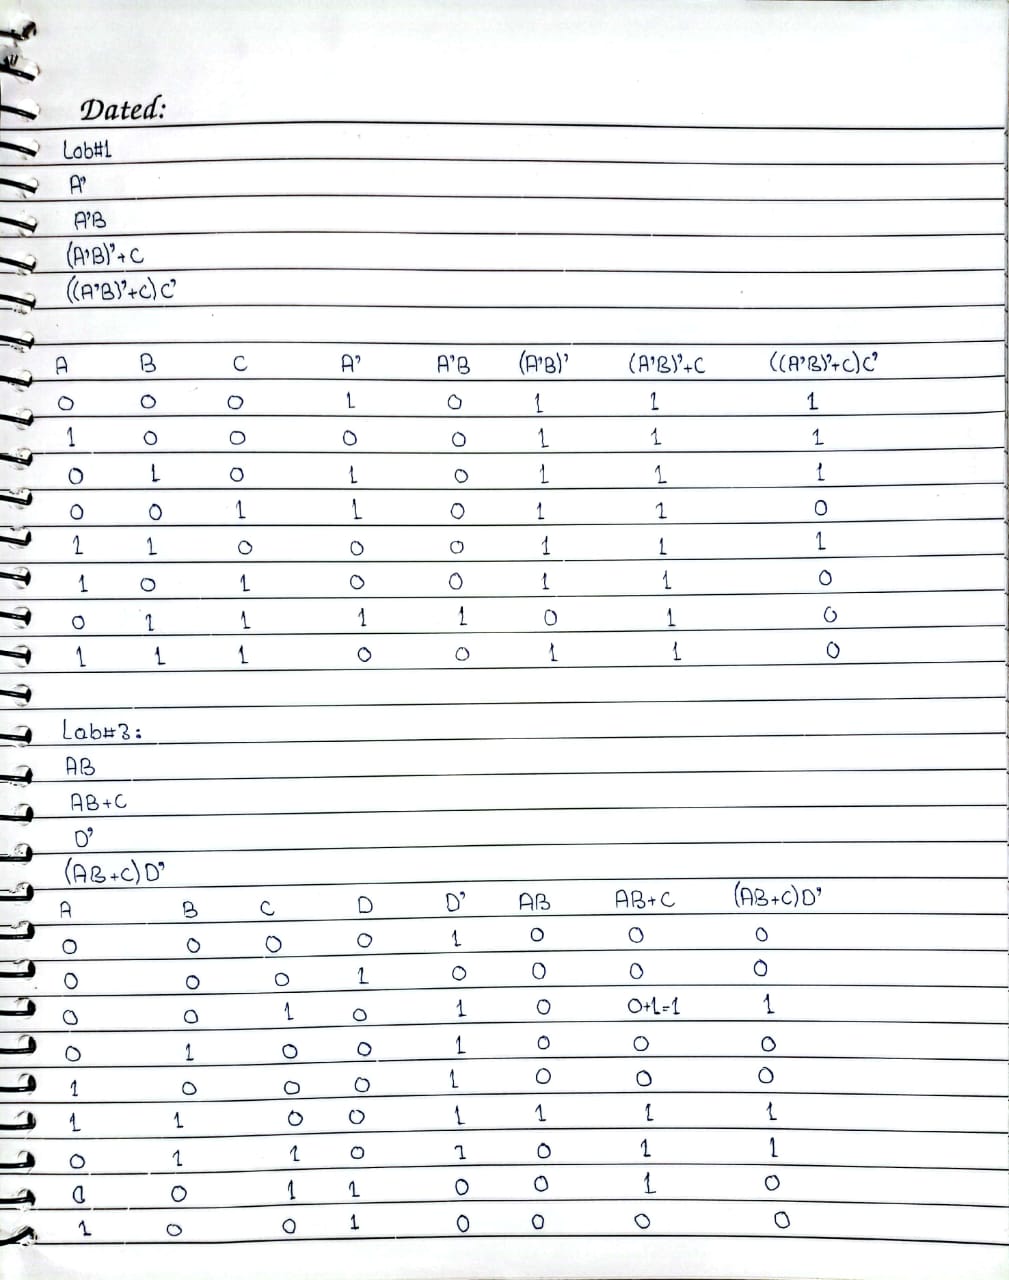 Dated:
Lab#1
A'
A'B
(A'B)'+C
((A'B)'+C)C'
A B C A' A'B (A'B)' (A'B)'+C ((A'B)'+C)C'
0 0 0 1 0 1 1 1
1 0 0 0 0 1 1 1
0 1 0 1 0 1 1 1
0 0 1 1 0 1 1 0
1 1 0 0 0 1 1 1
1 0 1 0 0 1 1 0
0 1 1 1 1 0 1 0
1 1 1 0 0 1 1 0
Lab#3:
AB
AB+C
D'
(AB+C)D'
A B C D D' AB AB+C (AB+C)D'
0 0 0 0 1 0 0 0
0 0 0 1 0 0 0 0
0 0 1 0 1 0 0+1=1 1
0 1 0 0 1 0 0 0
1 0 0 0 1 0 0 0
1 1 0 0 1 1 1 1
0 1 1 0 1 0 1 1
0 0 1 1 0 0 1 0
1 0 0 1 0 0 0 0